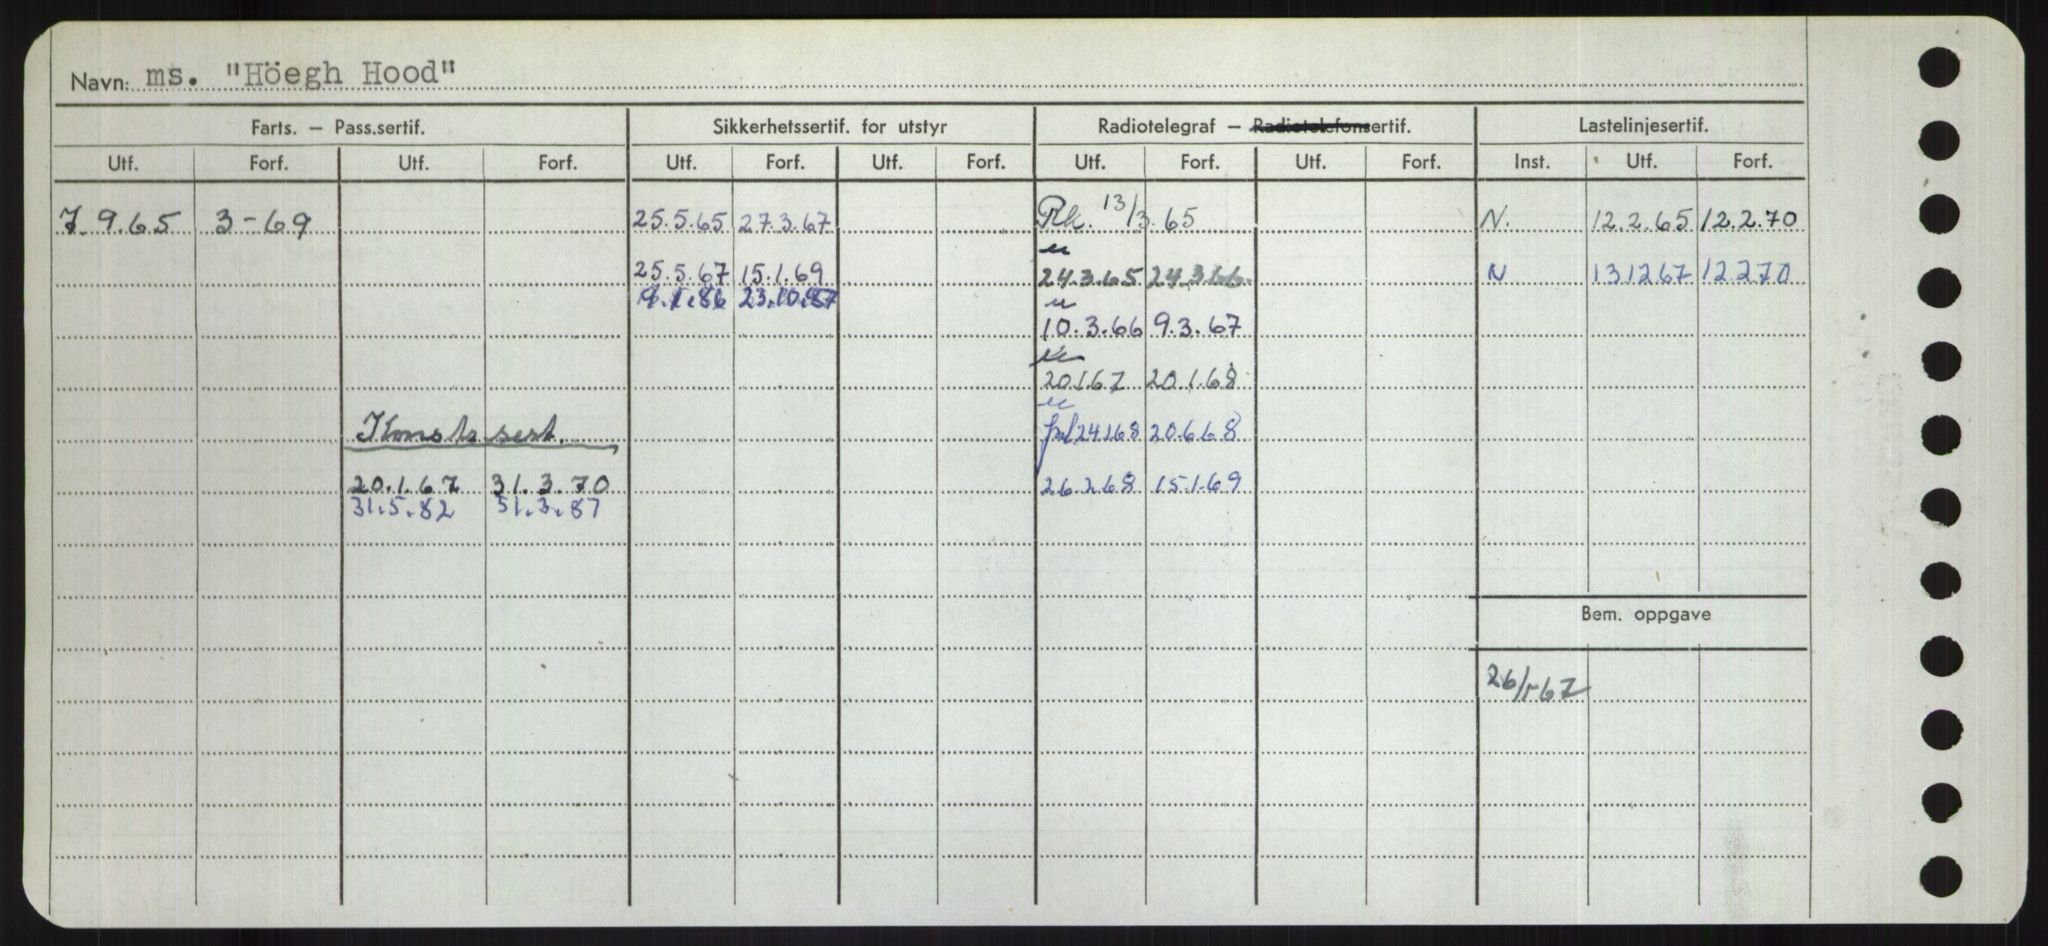 Navn: ms. "Höegh Hood"
Farts. – Pass.sertif. Sikkerhetssertif. for utstyr Radiotelegraf – Radiotelefonsertif. Lastelinjesertif.
Utf. Forf. Utf. Forf. Utf. Forf. Utf. Forf. Utf. Forf. Utf. Forf. Inst. Utf. Forf.
7.9.65 3-69 25.5.65 27.3.67 Rk. 13/3.65 N. 12.2.65 12.2.70
25.5.67 15.1.69 24.3.65 24.3.66 N 13.12.67 12.2.70
23.10.87
10.3.66 9.3.67
20.1.67 20.1.68
Konstr. sert. 24.1.68 20.6.68
20.1.67 31.3.70 26.2.68 15.1.69
31.5.82 31.3.87
Bem. oppgave
26/1-67